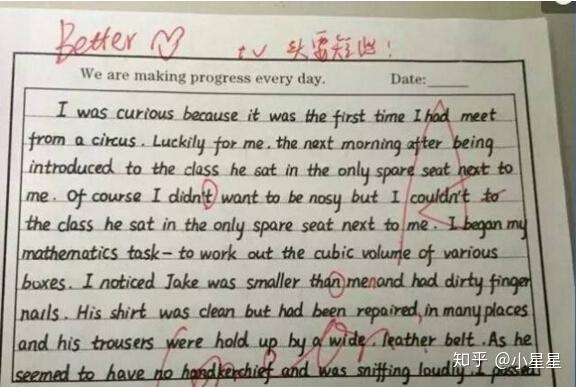 Better
t v 头要短些!
We are making progress every day. Date:
I was curious because it was the first time I had meet
from a circus. Luckily for me. the next morning after being
introduced to the class he sat in the only spare seat next to
me. Of course I didn't want to be nosy but I couldn't to
the class he sat in the only spare seat next to me. I began my
mathematics task- to work out the cubic volume of various
boxes. I noticed Jake was smaller than menand had dirty finger
nails. His shirt was clean but had been repaired, in many places
and his trousers were hold up by a wide, leather belt. As he
seemed to have no handkerchief and was sniffing loudly. I
知乎 @小星星